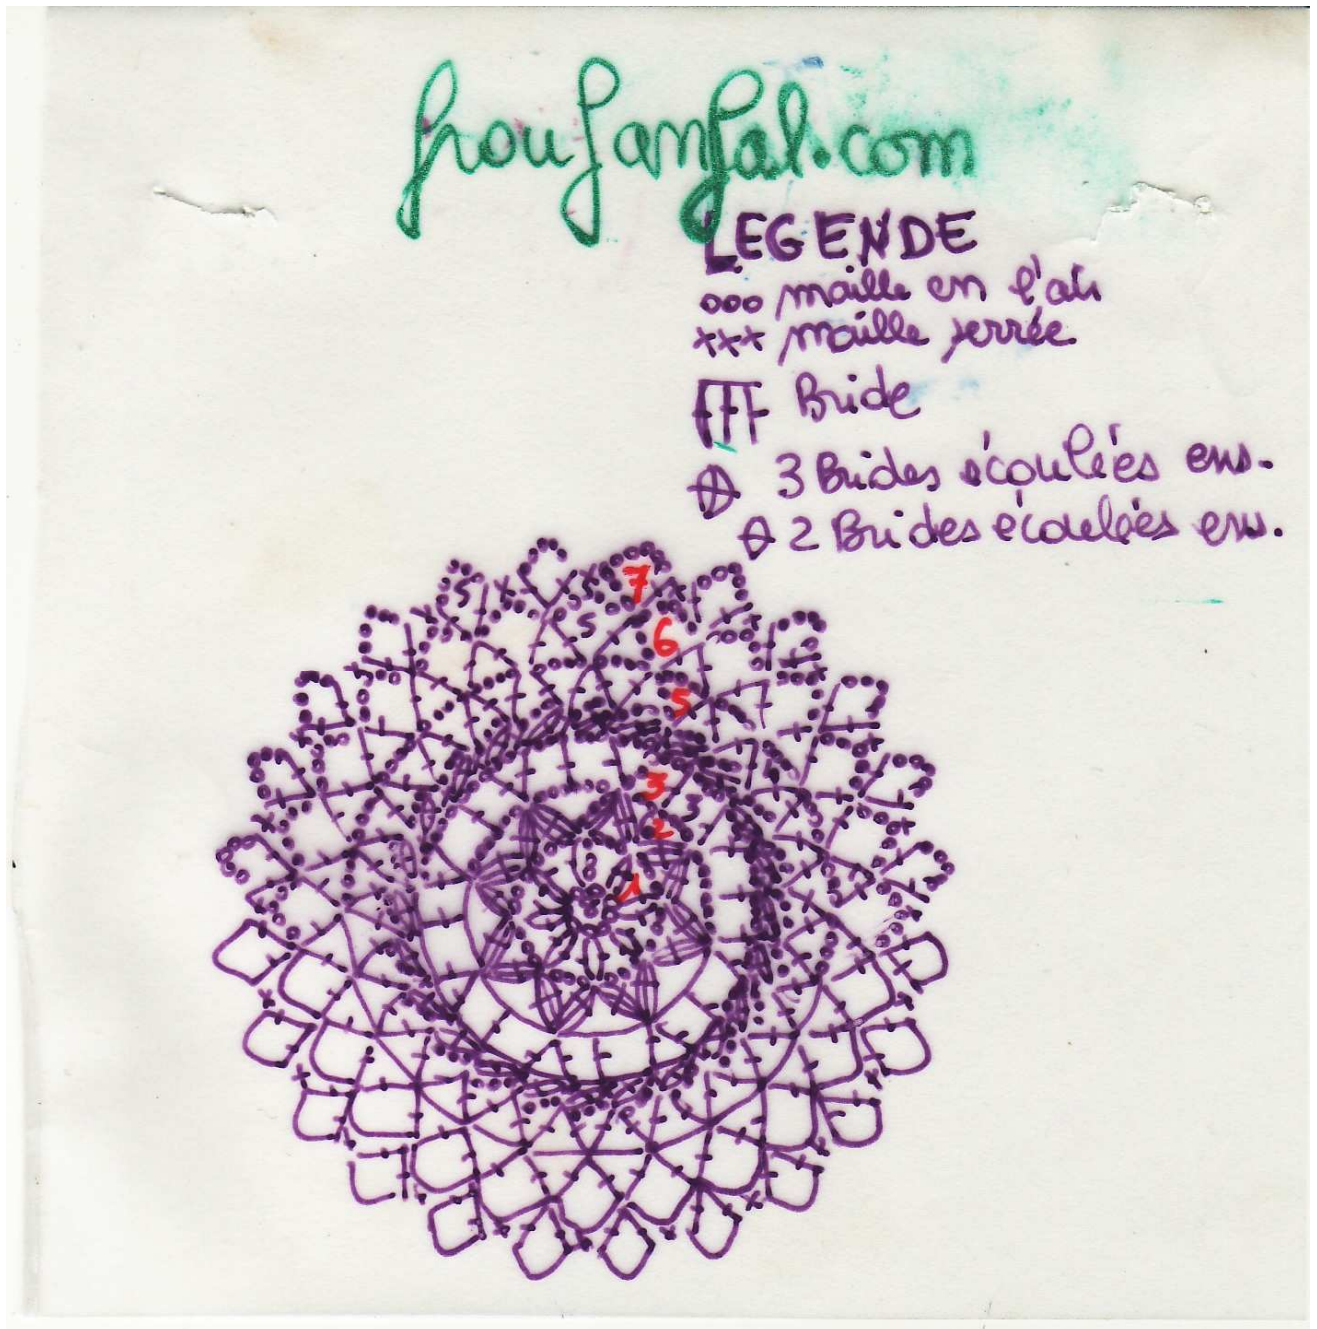 froufanfal.com
LEGENDE
ooo maille en l'air
xxx maille serrée
Bride
3 Brides écoulées ens.
2 Brides écoulées ens.
7
6
5
3
2
1